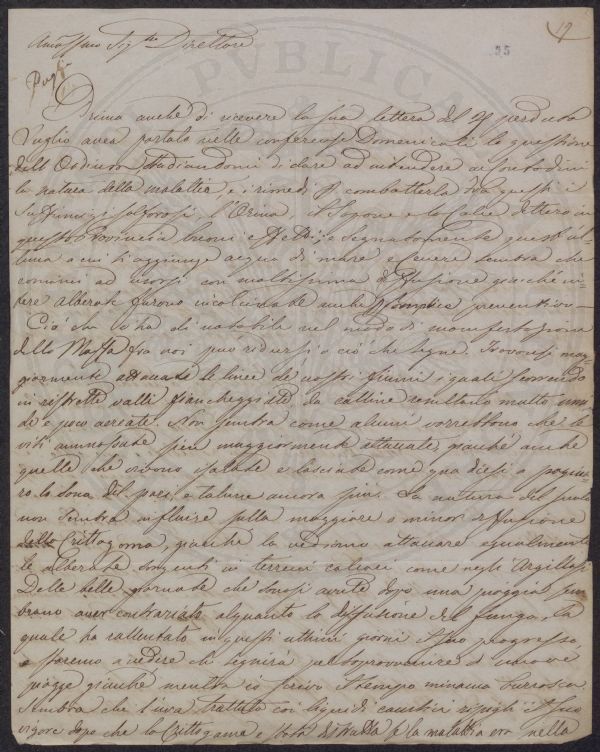 19
35
Direttore
PVBLICA
Prima anche di ricevere la sua lettera del 27 perduto
Luglio avea portato nelle conferenze Domenicali la questione
dell'Oidium, studiandomi di dare ad intendere ai contadini
la natura della malattia, e i rimedi p combatterla tra questi i
solforosi, l'Orina, il Sapone e la Calce dettero in
questa Provincia buoni e segnatamente quest' ul-
tima a cui si aggiunge acqua di mare e Cenere sembra che
cominci ad usarsi con moltissima diffusione giacché in-
tere alberate furono anche preventivo.
Ciò che vi ha di notabile nel modo di manifestazione
della Malattia fra noi può ridursi a ciò che segue. Trovonsi mag-
giormente attaccate le linee de nostri fiumi i quali scorrendo
in ristrette valli fiancheggiate da colline resultarlo molto umi-
de e poco aereate. Non sembra come alcuni vorrebbono che le
viti ammassate sien maggiormente attaccate, poiché anche
quelle che vivono isolate e lasciate come qua diesi a
la dona del paesi e talune ancora più. La natura del suolo
non sembra influire sulla maggiore o minor diffusione
della Crittogama, giacché la vediamo attaccare egualmente
le alberate sorgenti in terreni calcari come negli Argillosi
Delle belle giornate che sonosi avute dopo una pioggia sem-
brano aver contrariato alquanto la diffusione del fungo, la
quale ha rallentato in questi ultimi giorni il suo progresso,
e staremo a vedere che seguirà nel sopravvenire d nuove
piogge giacché mentre io scrivo il tempo minaccia burrasca
Sembra che l'uva trattata coi liquidi caustici ripigli il suo
vigore dopo che la Crittogama è stata distrutta se la malattia era nella